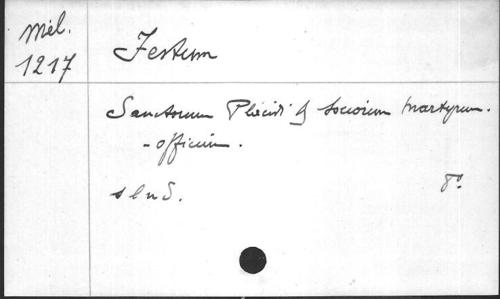 Mél.
1217
Festum
Sanctorum Placidi & Sociorum Martyrum.
- officium.
s l n d.
8°